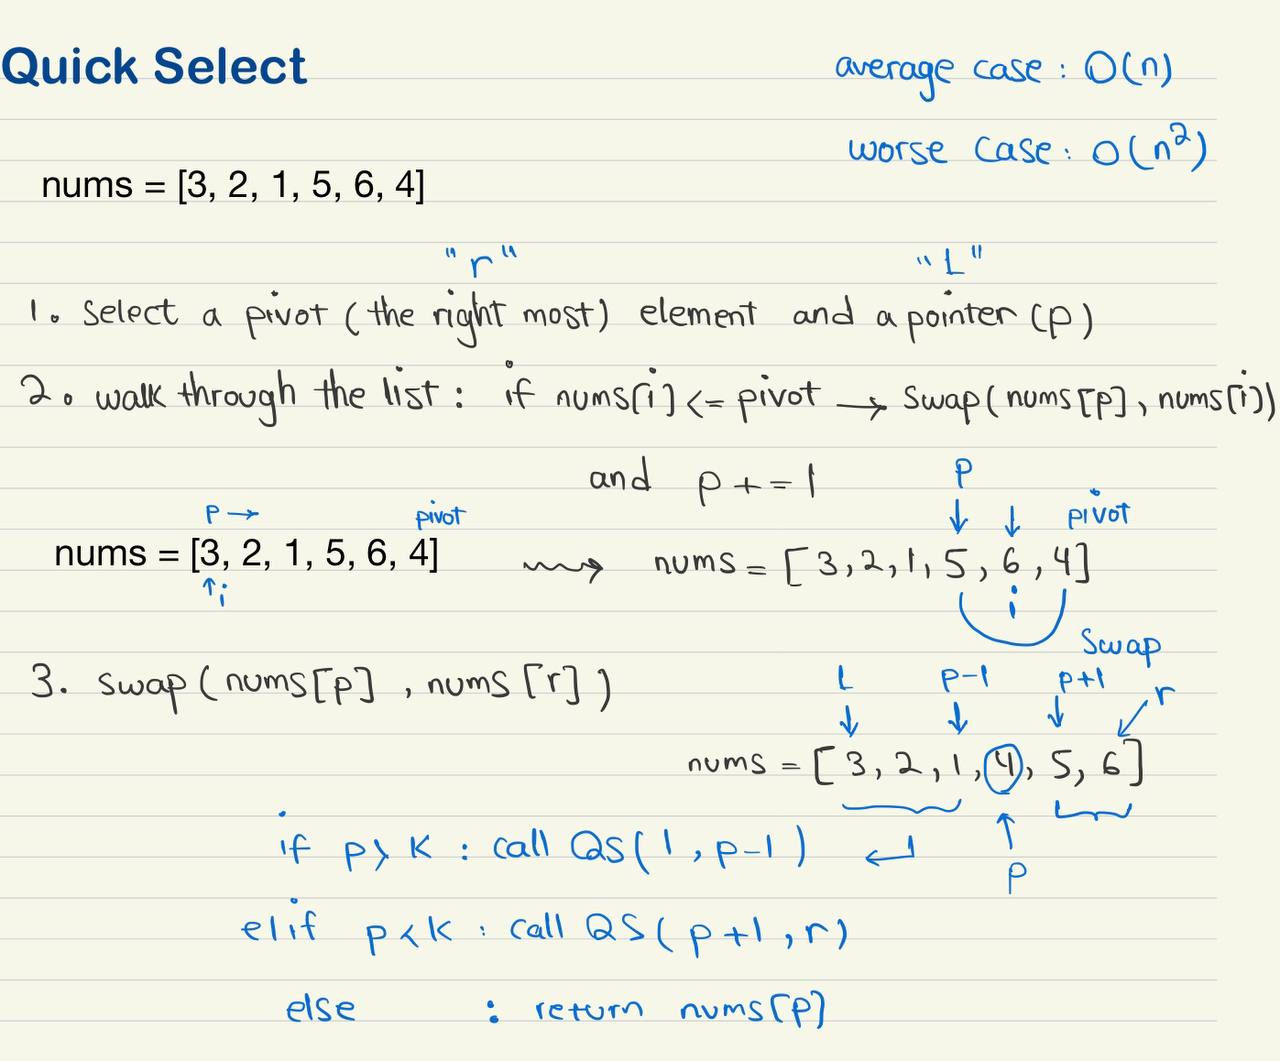 Quick Select
average case : O(n)
worse case : O(n²)
nums = [3, 2, 1, 5, 6, 4]
"r" "L"
1. Select a pivot (the right most) element and a pointer (p)
2. walk through the list : if nums[i] <= pivot → Swap(nums[p], nums[i])
and p += 1
p → pivot
nums = [3, 2, 1, 5, 6, 4]
↑ i
p
↓ ↓ pivot
⟿ nums = [3, 2, 1, 5, 6, 4]
i
Swap
3. swap(nums[p], nums[r])
L p-1 p+1 r
↓ ↓ ↓ ↙
nums = [3, 2, 1, 4, 5, 6]
↑
p
if p > k : call QS(l, p-1) ↵
elif p < k : call QS(p+1, r)
else : return nums[p]